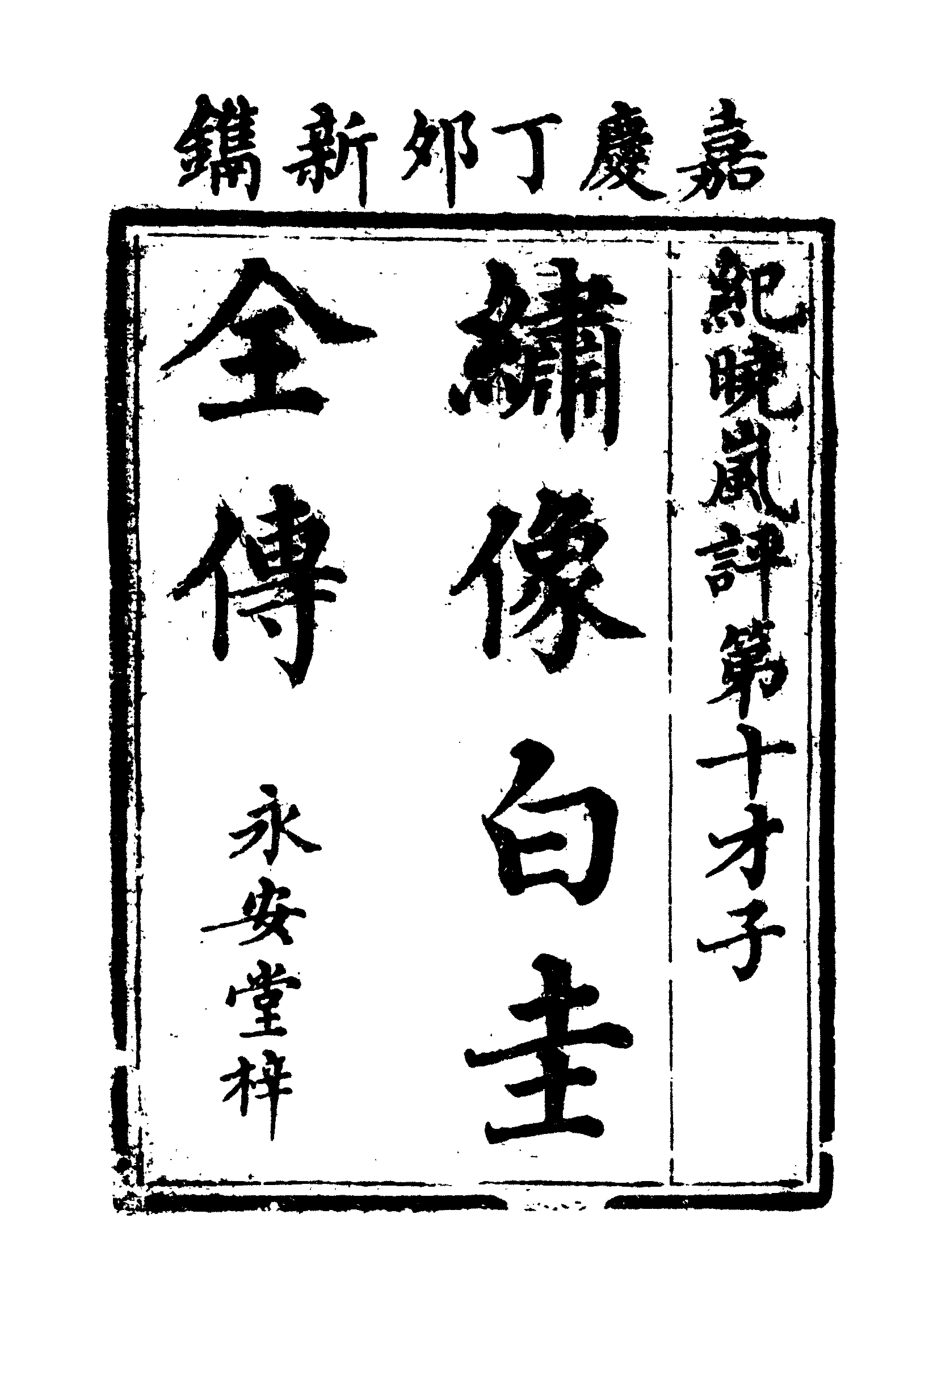 嘉慶丁卯新鐫
紀曉嵐評第十才子
繡像白圭
全傳
永安堂梓